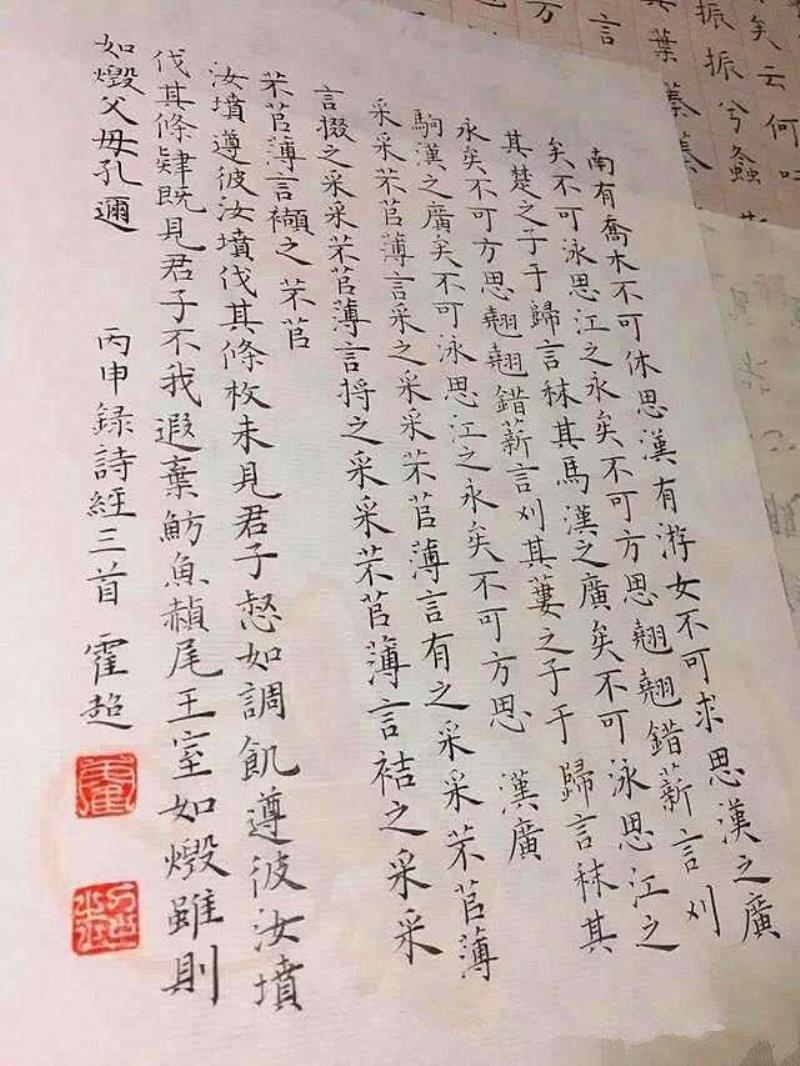 南有喬木不可休思漢有游女不可求思漢之廣
矣不可泳思江之永矣不可方思翹翹錯薪言刈
其楚之子于歸言秣其馬漢之廣矣不可泳思江之
永矣不可方思翹翹錯薪言刈其蔞之子于歸言秣其
駒漢之廣矣不可泳思江之永矣不可方思 漢廣
采采芣苢薄言采之采采芣苢薄言有之采采芣苢薄
言掇之采采芣苢薄言捋之采采芣苢薄言袺之采采
芣苢薄言襭之 芣苢
汝墳遵彼汝墳伐其條枚未見君子惄如調飢遵彼汝墳
伐其條肄既見君子不我遐棄魴魚赬尾王室如燬雖則
如燬父母孔邇
丙申録詩經三首 霍超
矣云何吁
振振兮螽
其葉蓁蓁
言
方